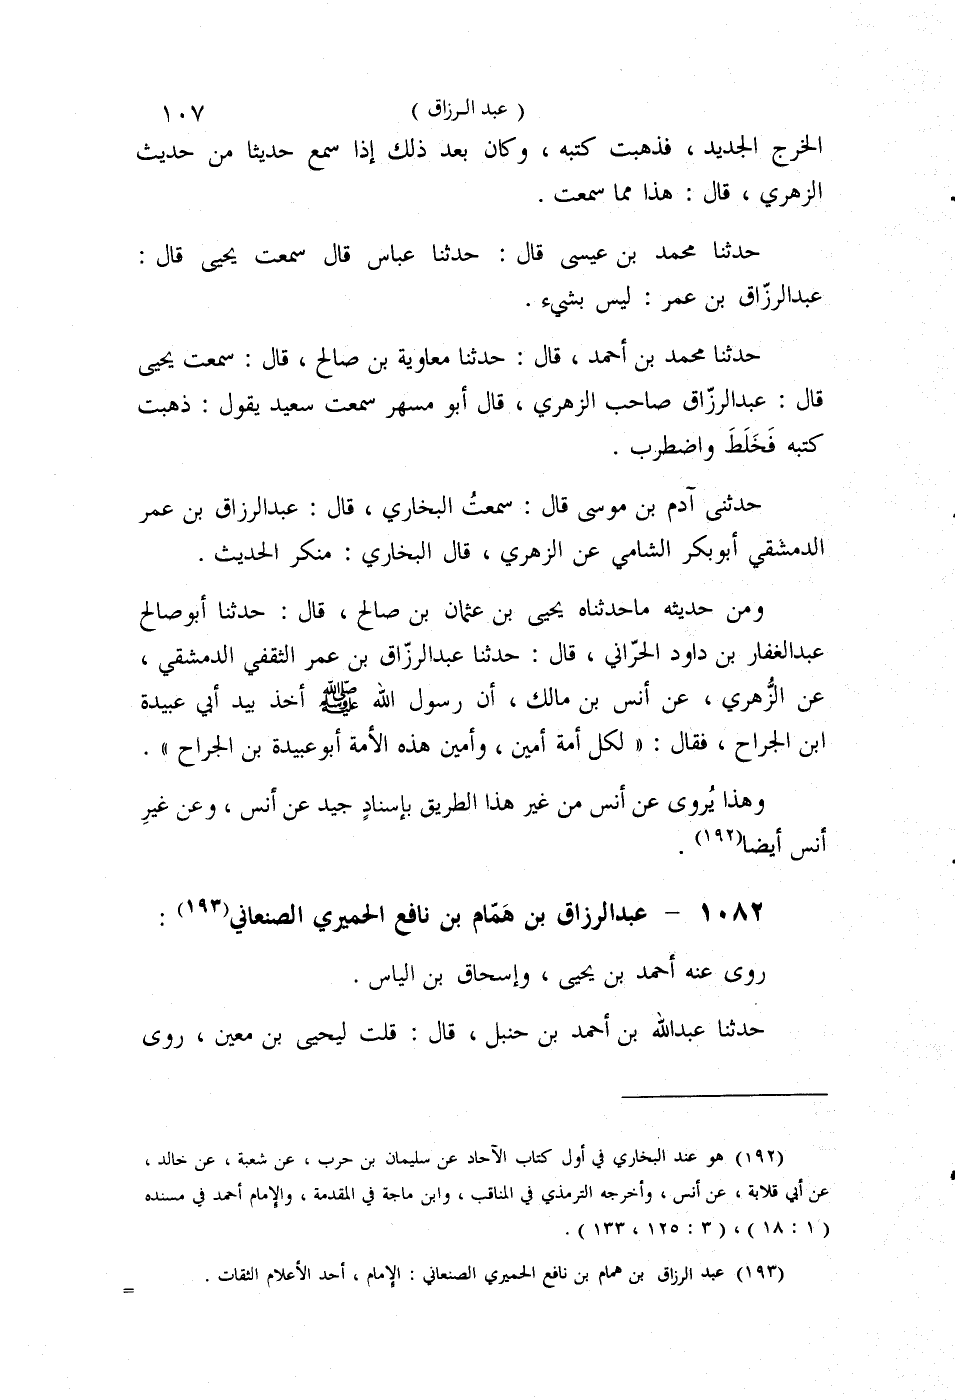 ( عبد الرزاق )
١٠٧
الخرج الجديد ، فذهبت كتبه ، وكان بعد ذلك إذا سمع حديثا من حديث
الزهري ، قال : هذا مما سمعت .
حدثنا محمد بن عيسى قال : حدثنا عباس قال سمعت يحيى قال :
عبدالرزّاق بن عمر : ليس بشيء .
حدثنا محمد بن أحمد ، قال : حدثنا معاوية بن صالح ، قال : سمعت يحيى
قال : عبدالرزّاق صاحب الزهري ، قال أبو مسهر سمعت سعيد يقول : ذهبت
كتبه فَخَلَطَ واضطرب .
حدثنى آدم بن موسى قال : سمعتُ البخاري ، قال : عبدالرزاق بن عمر
الدمشقي أبوبكر الشامي عن الزهري ، قال البخاري : منكر الحديث .
ومن حديثه ماحدثناه يحيى بن عثمان بن صالح ، قال : حدثنا أبوصالح
عبدالغفار بن داود الحرّاني ، قال : حدثنا عبدالرزّاق بن عمر الثقفي الدمشقي ،
عن الزُّهري ، عن أنس بن مالك ، أن رسول الله ﷺ أخذ بيد أبي عبيدة
ابن الجراح ، فقال : « لكل أمة أمين ، وأمين هذه الأمة أبوعبيدة بن الجراح » .
وهذا يُروى عن أنس من غير هذا الطريق بإسنادٍ جيد عن أنس ، وعن غيرِ
أنس أيضا(١٩٢) .
١٠٨٢ - عبدالرزاق بن هَمّام بن نافع الحميري الصنعاني(١٩٣) :
روى عنه أحمد بن يحيى ، وإسحاق بن الياس .
حدثنا عبدالله بن أحمد بن حنبل ، قال : قلت ليحيى بن معين ، روى
(١٩٢) هو عند البخاري في أول كتاب الآحاد عن سليمان بن حرب ، عن شعبة ، عن خالد ،
عن أبي قلابة ، عن أنس ، وأخرجه الترمذي في المناقب ، وابن ماجة في المقدمة ، والإمام أحمد في مسنده
( ١ : ١٨ ) ، ( ٣ : ١٢٥ ، ١٣٣ ) .
(١٩٣) عبد الرزاق بن همام بن نافع الحميري الصنعاني : الإمام ، أحد الأعلام الثقات .
=